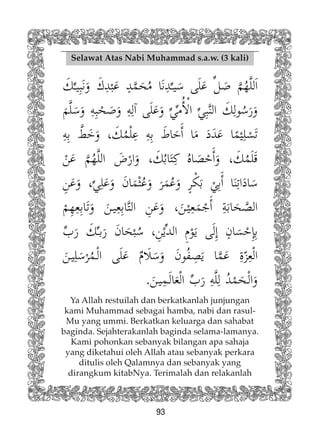 Selawat Atas Nabi Muhammad s.a.w. (3 kali)
اَللَّهُمَّ صَلِّ عَلَى سَيِّدِنَا مُحَمَّدٍ عَبْدِكَ وَنَبِيِّكَ
وَرَسُولِكَ النَّبِيِّ الْأُمِّيِّ وَعَلَى آلِهِ وَصَحْبِهِ وَسَلَّمَ
تَسْلِيْمًا عَدَدَ مَا أَحَاطَ بِهِ عِلْمُكَ، وَخَطَّ بِهِ
قَلَمُكَ، وَأَحْصَاهُ كِتَابُكَ، وَارْضَ اللَّهُمَّ عَنْ
سَادَاتِنَا أَبِيْ بَكْرٍ وَعُمَرَ وَعُثْمَانَ وَعَلِيٍّ، وَعَنِ
الصَّحَابَةِ أَجْمَعِيْنَ، وَعَنِ التَّابِعِينَ وَتَابِعِيهِمْ
بِإِحْسَانٍ إِلَى يَوْمِ الدِّيْنِ، سُبْحَانَ رَبِّكَ رَبِّ
الْعِزَّةِ عَمَّا يَصِفُونَ وَسَلَامٌ عَلَى الْمُرْسَلِينَ
وَالْحَمْدُ لِلَّهِ رَبِّ الْعَالَمِينَ.
Ya Allah restuilah dan berkatkanlah junjungan
kami Muhammad sebagai hamba, nabi dan rasul-
Mu yang ummi. Berkatkan keluarga dan sahabat
baginda. Sejahterakanlah baginda selama-lamanya.
Kami pohonkan sebanyak bilangan apa sahaja
yang diketahui oleh Allah atau sebanyak perkara
ditulis oleh Qalamnya dan sebanyak yang
dirangkum kitabNya. Terimalah dan relakanlah
93